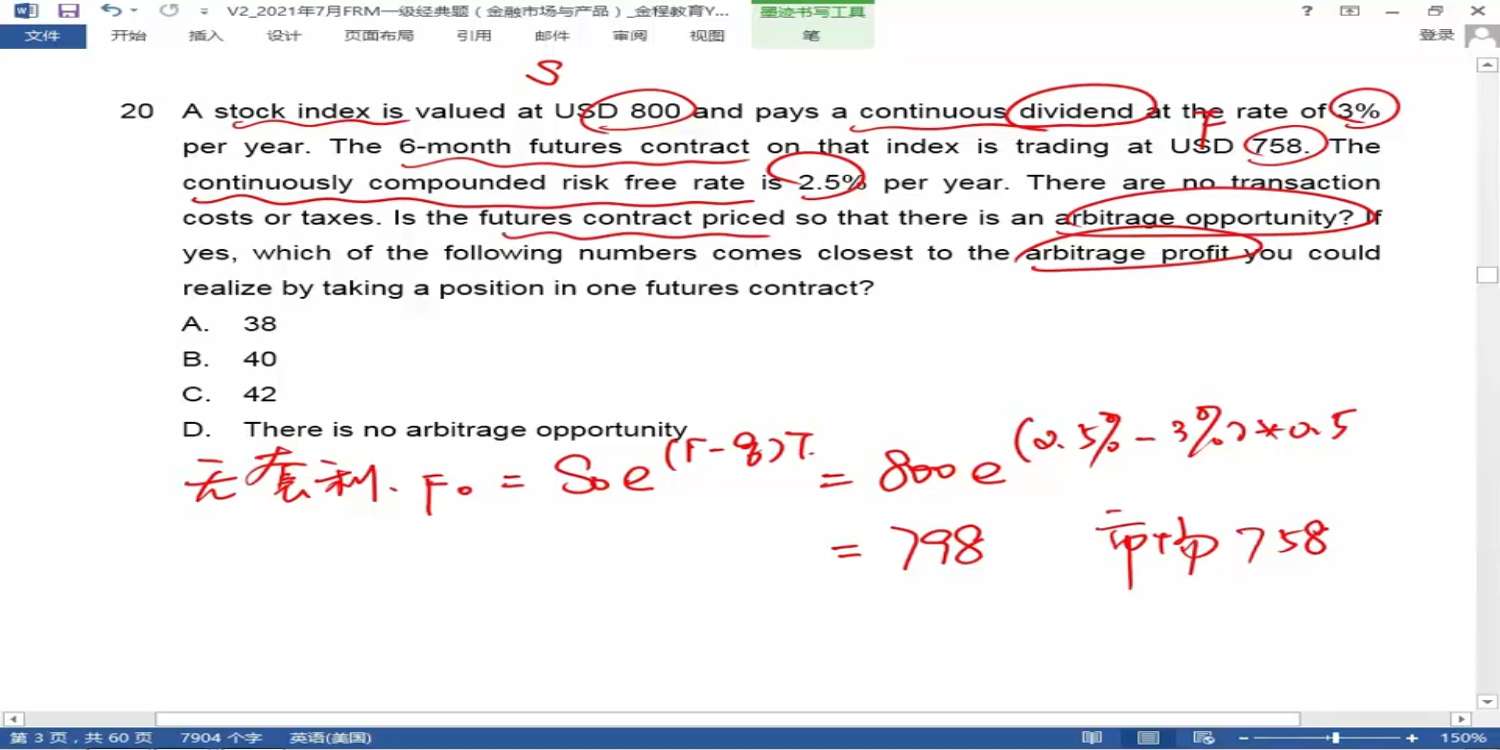 V2_2021年7月FRM一级经典题（金融市场与产品）_金程教育Y... 墨迹书写工具
文件 开始 插入 设计 页面布局 引用 邮件 审阅 视图 笔 登录
S
20 A stock index is valued at USD 800 and pays a continuous dividend at the rate of 3%
F
per year. The 6-month futures contract on that index is trading at USD 758. The
continuously compounded risk free rate is 2.5% per year. There are no transaction
costs or taxes. Is the futures contract priced so that there is an arbitrage opportunity? If
yes, which of the following numbers comes closest to the arbitrage profit you could
realize by taking a position in one futures contract?
A. 38
B. 40
C. 42
D. There is no arbitrage opportunity
无套利. F₀ = S₀e^(r-q)T. = 800e^(2.5%-3%)*0.5
= 798 市场 758
第 3 页，共 60 页 7904 个字 英语(美国) 150%